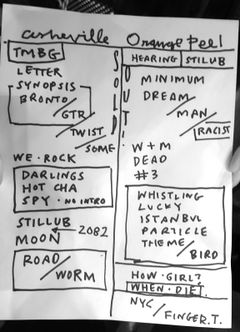 asheville Orange Peel
TMBG
LETTER
SYNOPSIS
BRONTO/
GTR
/TWIST
/SOME
WE · ROCK
DARLINGS
HOT CHA
SPY · NO INTRO
STILLUB
MOON ← 2082
ROAD/
WORM
SOLD OUT!
HEARING STILUB
MINIMUM
DREAM/
MAN/
RACIST
W + M
DEAD
#3
WHISTLING
LUCKY
ISTANBUL
PARTICLE
THEME/
BIRD
HOW · GIRL?
WHEN · DIE?
NYC/
FINGER.T.